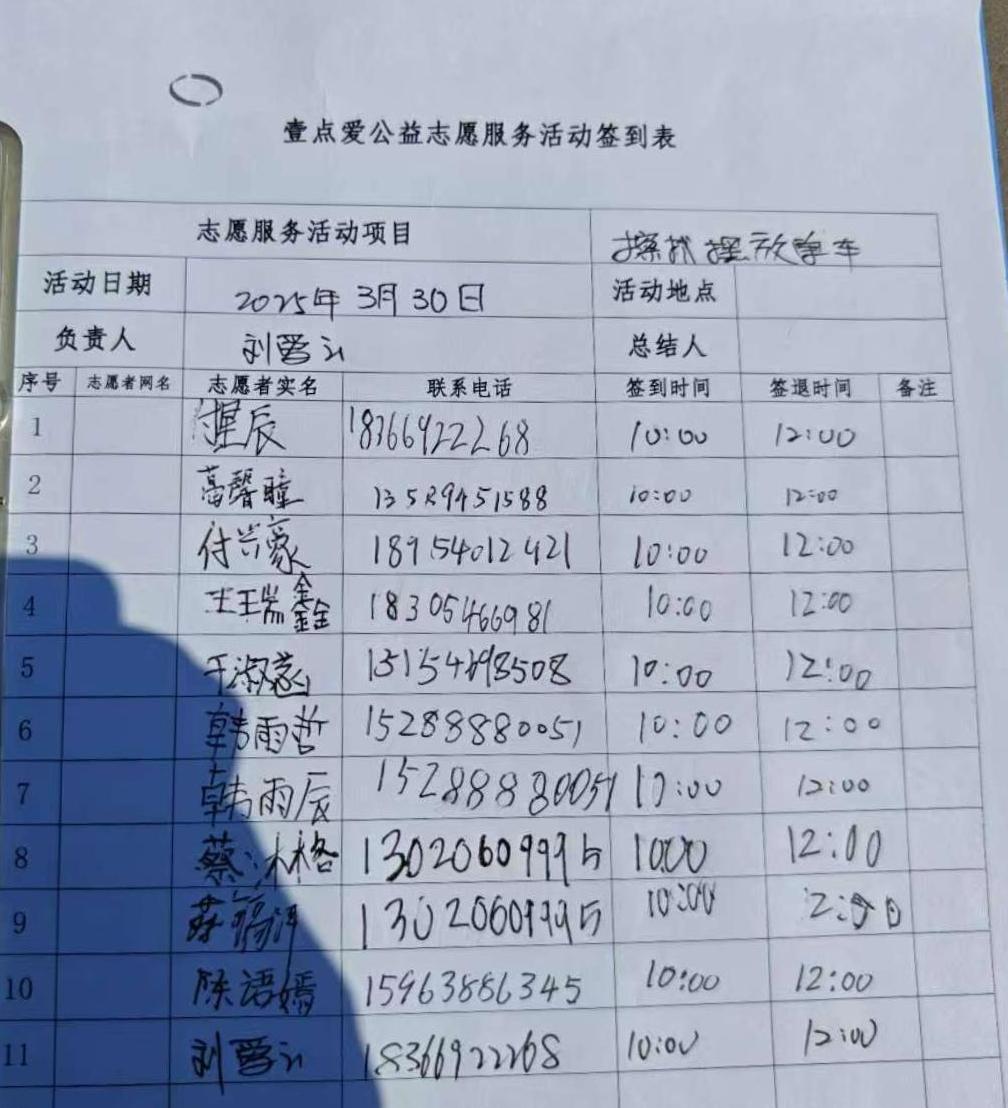 壹点爱公益志愿服务活动签到表
志愿服务活动项目 摆放单车
活动日期 2025年3月30日 活动地点
负责人 刘 总结人
序号 志愿者网名 志愿者实名 联系电话 签到时间 签退时间 备注
1 辰 18366922268 10:00 12:00
2 高馨瞳 13529451588 10:00 12:00
3 付兴豪 18954012421 10:00 12:00
4 王瑞鑫 18305466981 10:00 12:00
5 于淑 10:00 12:00
6 韩雨哲 15288880051 10:00 12:00
7 韩雨辰 15288880051 10:00 12:00
8 蔡沐格 13020609995 1000 12:00
9 13020609995 10:00
10 陈语嫣 15963886345 10:00 12:00
11 刘 18366922268 10:00 12:00